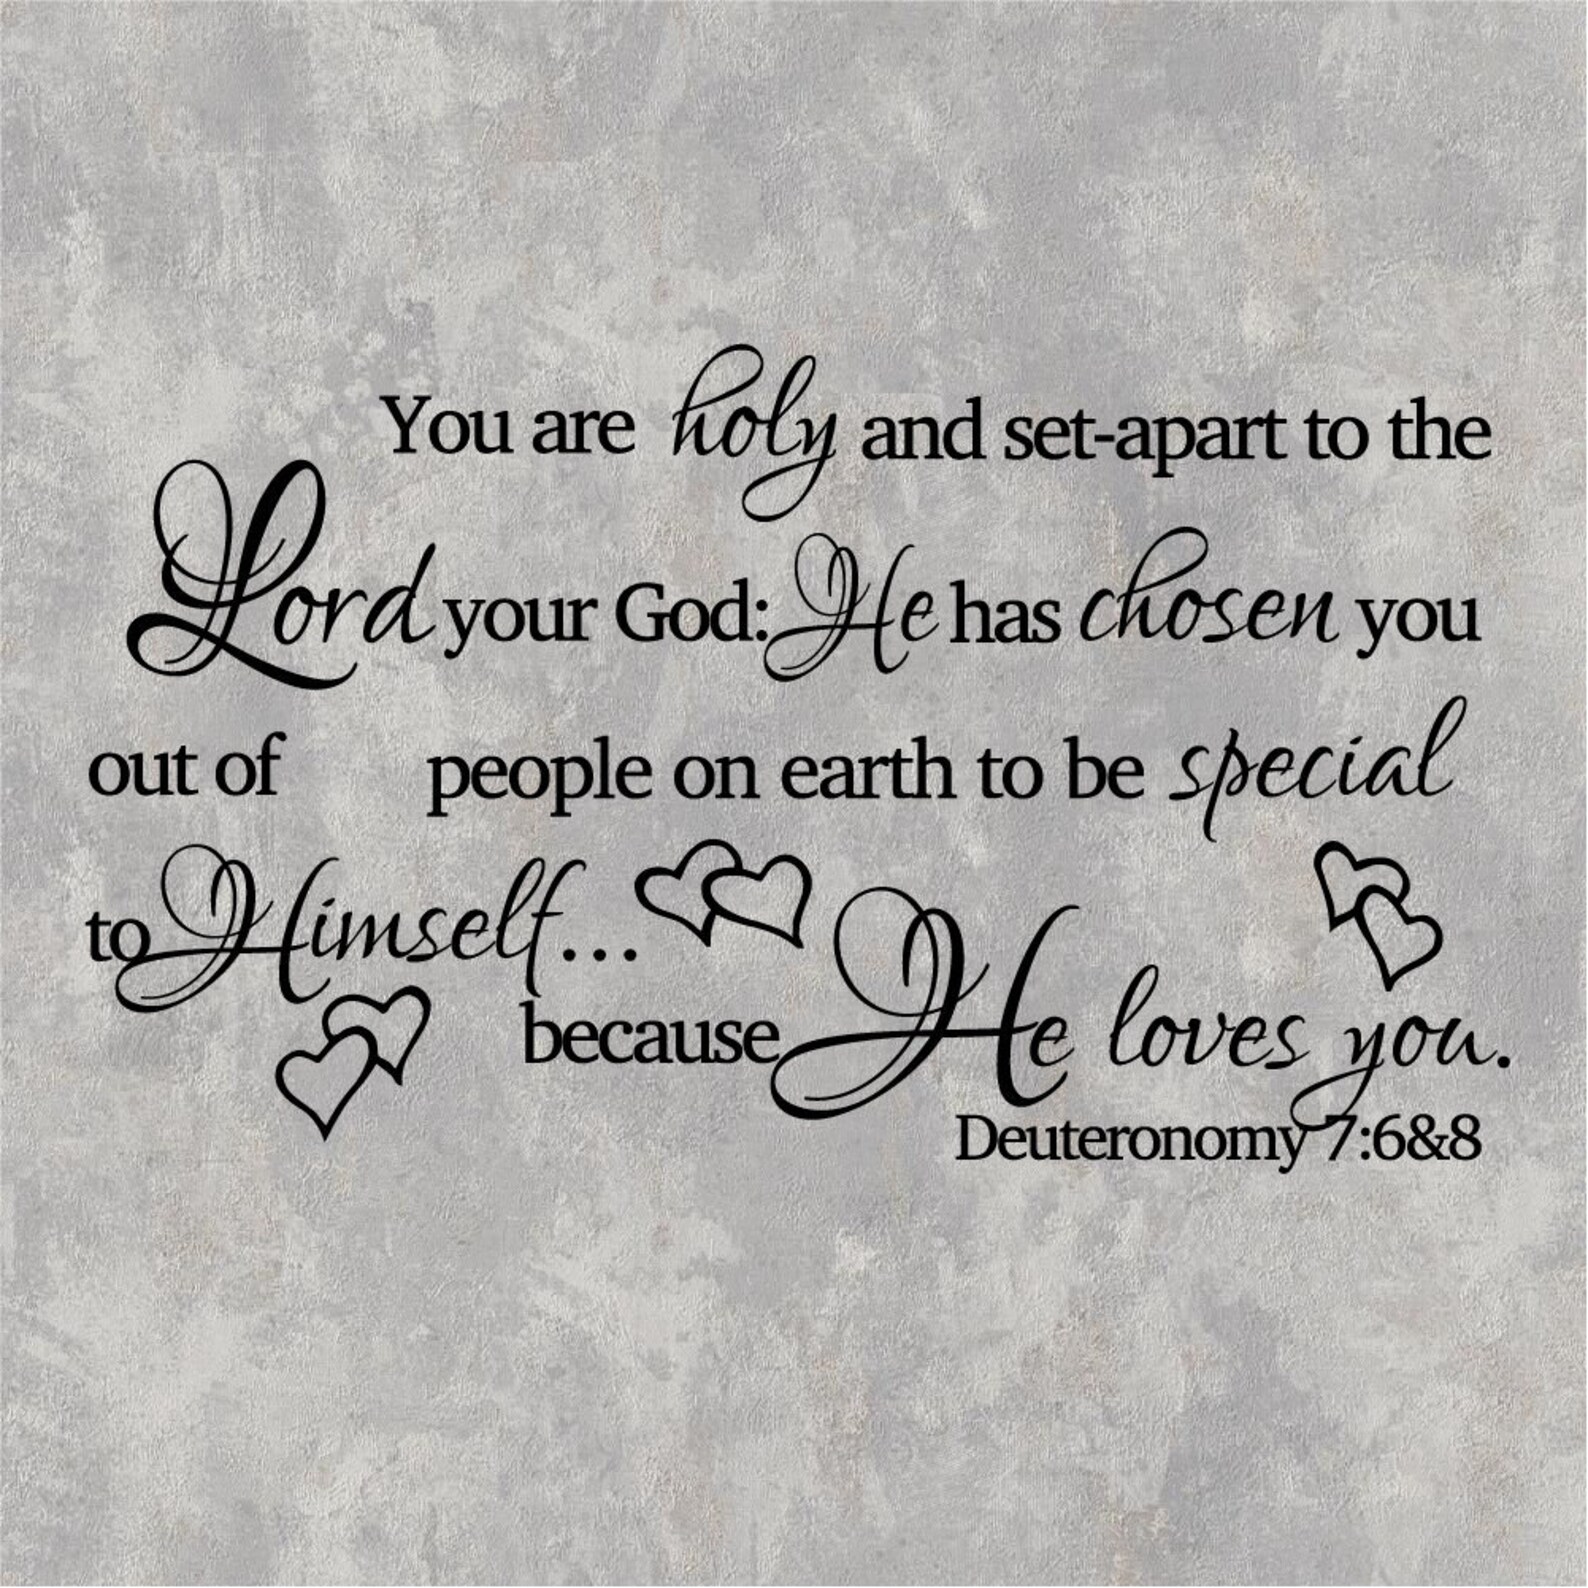 You are holy and set-apart to the
Lord your God: He has chosen you
out of people on earth to be special
to Himself...
because He loves you.
Deuteronomy 7:6&8